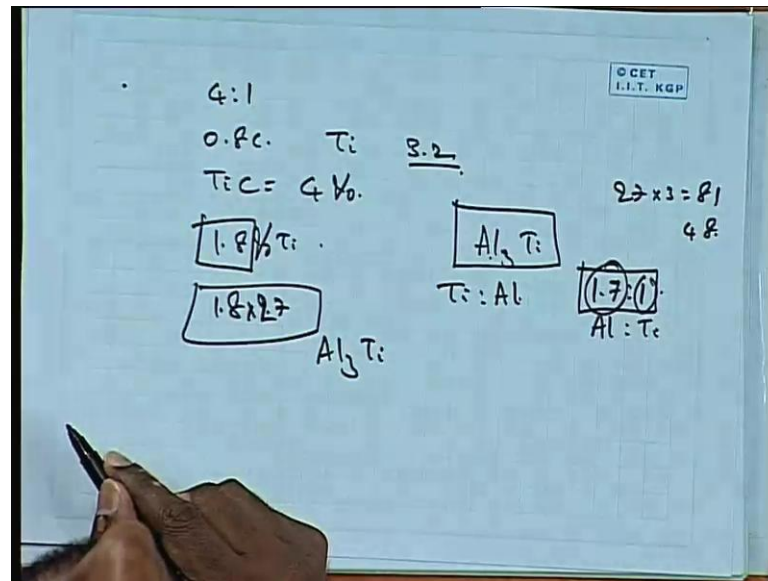 © CET
I.I.T. KGP
4:1
0.8C. Ti 3.2
TiC = 4 %.
27 x 3 = 81
48
1.8 % Ti.
Al3 Ti
Ti : Al
1.7 : 1
Al : Ti
1.8x27
Al3 Ti